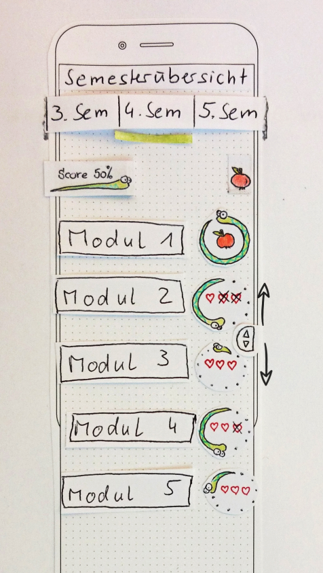 Semesterübersicht
3. Sem 4. Sem 5. Sem
Score 50%
Modul 1
Modul 2
Modul 3
Modul 4
Modul 5